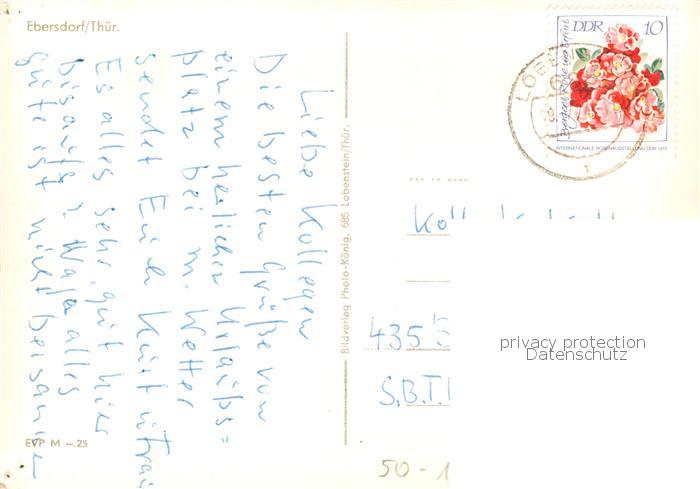 Ebersdorf/Thür.
Liebe Kollegen
Die besten Grüße von
einem herlichen Urlaubs=
platz bei m. Wetter
sendet Euch Kurt u. Frau
Es alles sehr gut hier
bis aufs W alles
Güte ist nicht beisammen
EVP M –.25
Bildverlag Photo-König, 685 Lobenstein/Thür.
DDR 10
INTERNATIONALE ROSENAUSSTELLUNG DDR 1972
LOBE
Koll
435
S.B.T.
privacy protection
Datenschutz
50-1